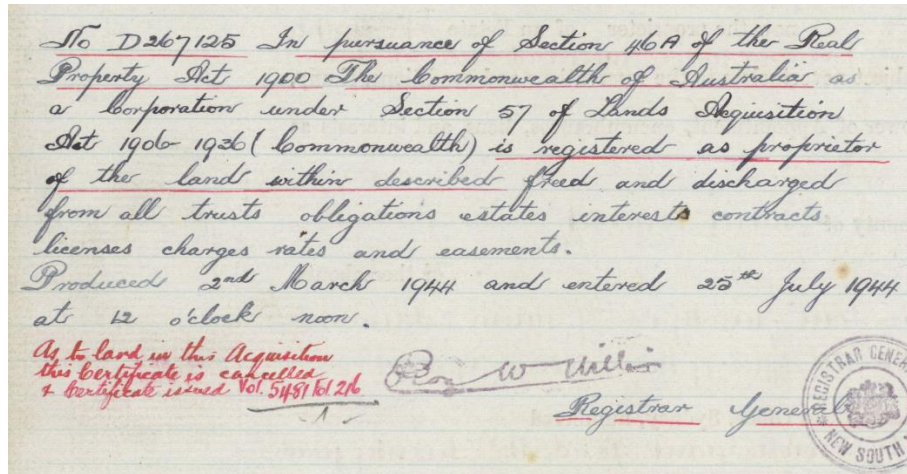 No D267125 In pursuance of Section 46A of the Real
Property Act 1900 The Commonwealth of Australia as
a Corporation under Section 57 of Lands Acquisition
Act 1906-1926 (Commonwealth) is registered as proprietor
of the land within described freed and discharged
from all trusts obligations estates interests contracts
licenses charges rates and easements.
Produced 2nd March 1944 and entered 25th July 1944
at 12 o'clock noon.
As to land in this Acquisition
this Certificate is cancelled
& Certificate issued Vol. 5481 Fol. 216
W
Registrar General
REGISTRAR GENER
NEW SOUTH